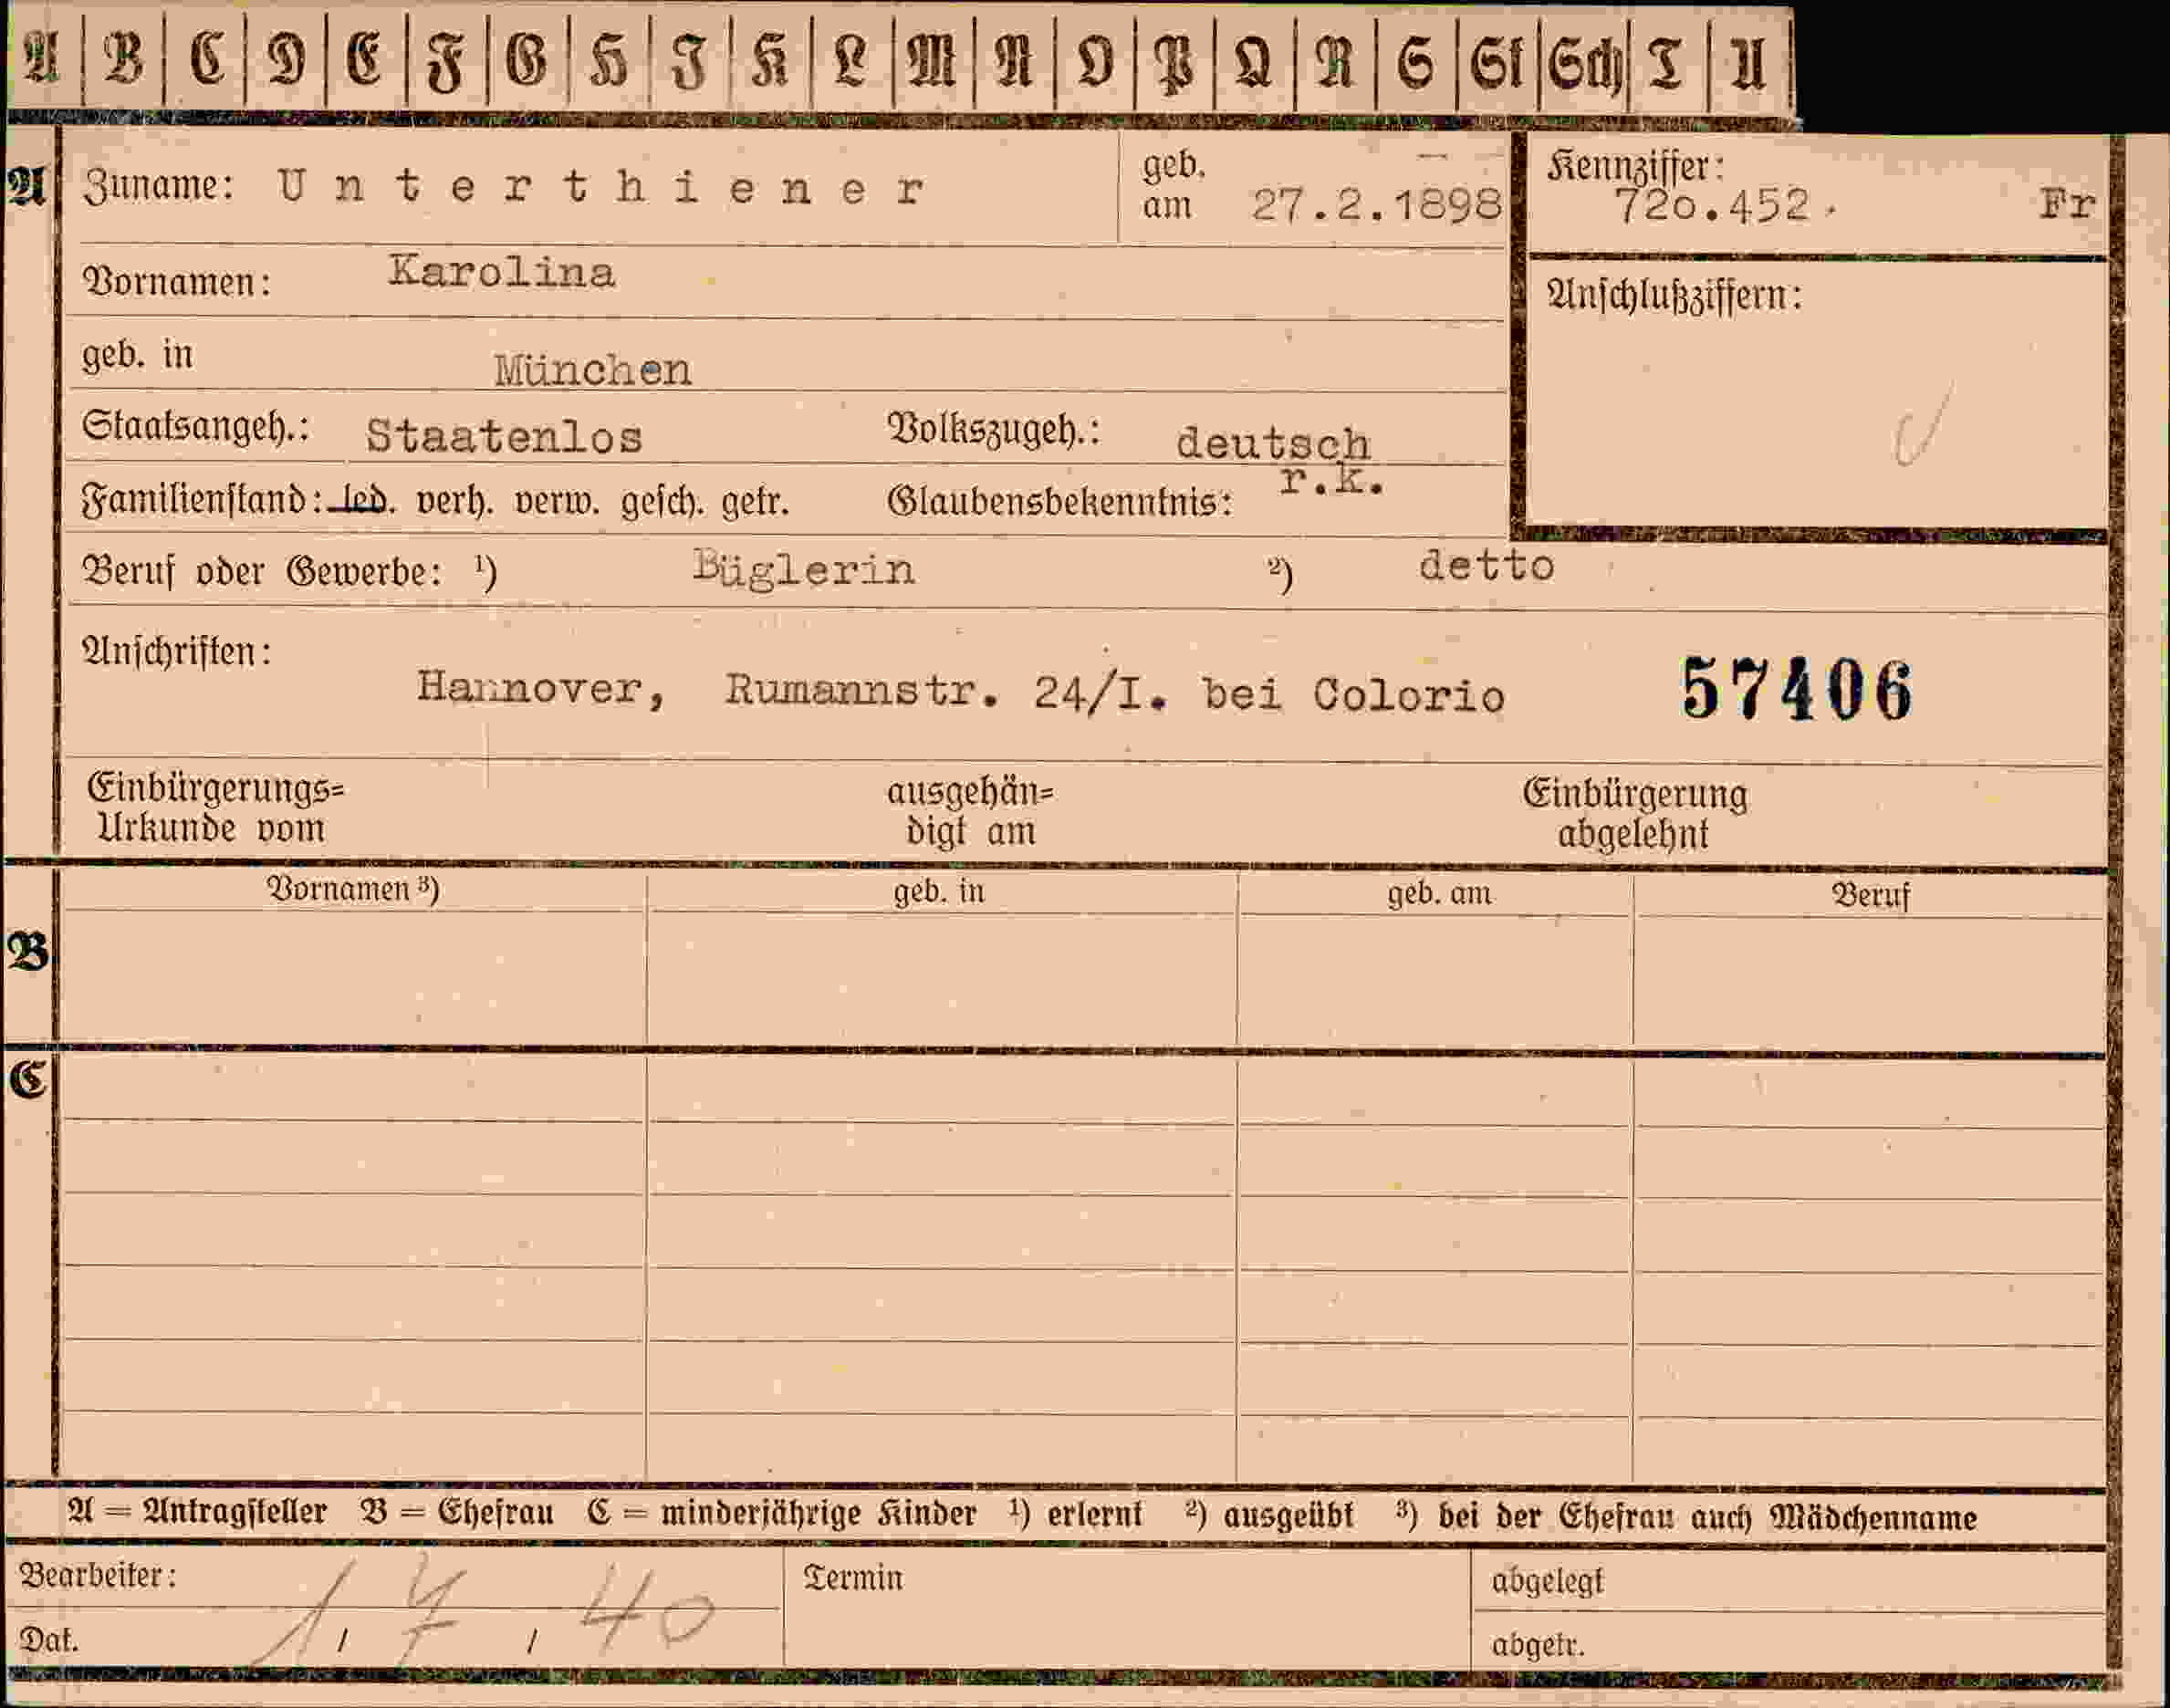 A B C D E F G H I K L M N O P Q R S St Sch T U
A Zuname: Unterthiener geb. am 27.2.1898 Kennziffer: 720.452. Fr
Vornamen: Karolina Anschlußziffern:
geb. in München
Staatsangeh.: Staatenlos Volkszugeh.: deutsch
Familienstand: led. verh. verw. gesch. getr. Glaubensbekenntnis: r.k.
Beruf oder Gewerbe: ¹) Büglerin ²) detto
Anschriften:
Hannover, Rumannstr. 24/I. bei Colorio 57406
Einbürgerungs= ausgehän= Einbürgerung
Urkunde vom digt am abgelehnt
Vornamen ³) geb. in geb. am Beruf
B
C
A = Antragsteller B = Ehefrau C = minderjährige Kinder ¹) erlernt ²) ausgeübt ³) bei der Ehefrau auch Mädchenname
Bearbeiter: Termin abgelegt
Dat. 1 / 7 / 40 abgetr.